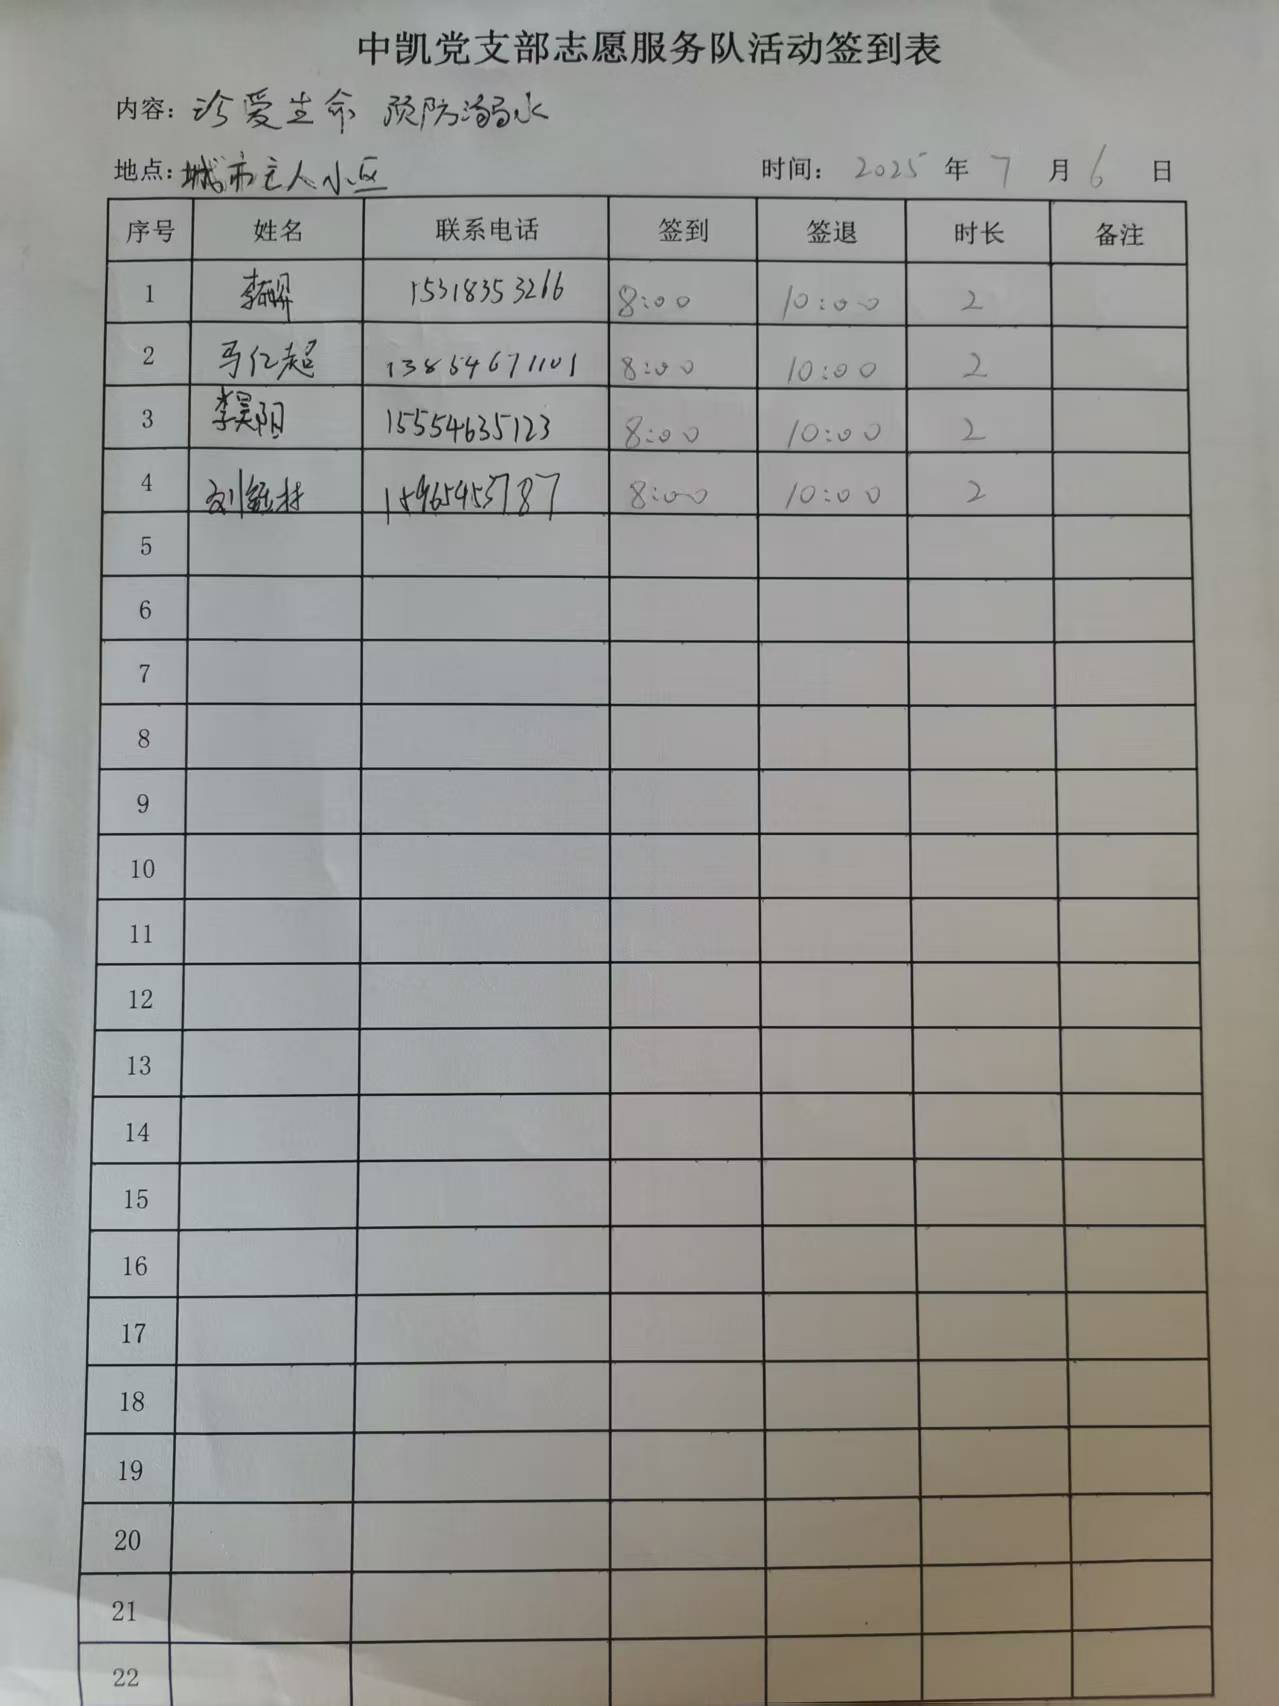 中凯党支部志愿服务队活动签到表
内容: 珍爱生命 预防溺水
地点: 城市主人小区 时间: 2025 年 7 月 6 日
序号 姓名 联系电话 签到 签退 时长 备注
1 李 15318353266 8:00 10:00 2
2 马仁超 13854671101 8:00 10:00 2
3 李昊阳 15554635123 8:00 10:00 2
4 刘 8:00 10:00 2
5
6
7
8
9
10
11
12
13
14
15
16
17
18
19
20
21
22